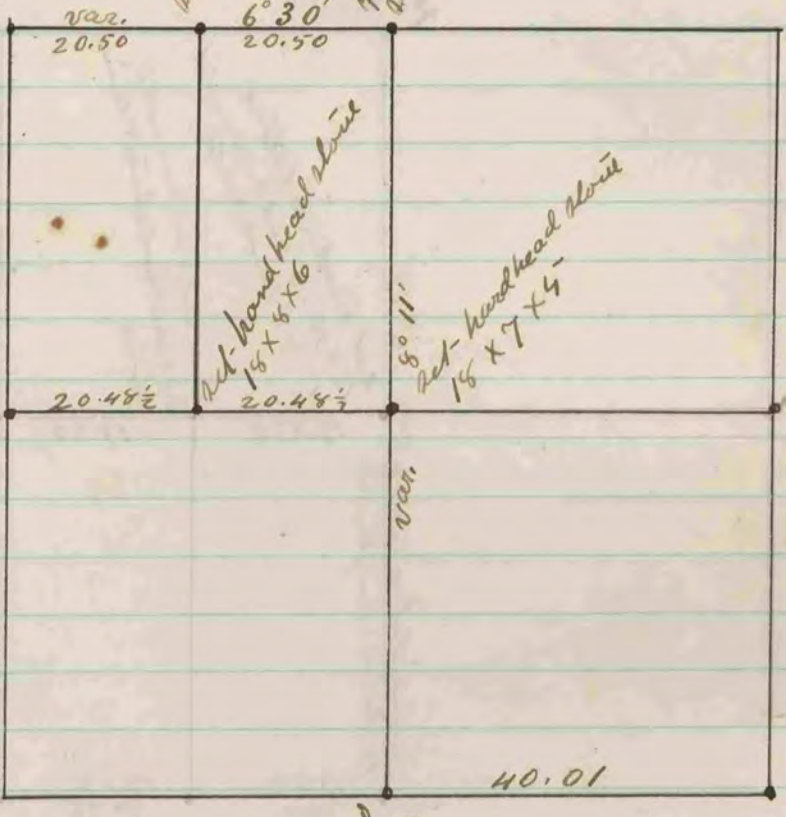 var. 6° 30'
20.50 20.50
set- hand head stone
18 x 8 x 6
8° 11'
set- hardhead stone
18 x 7 x 5
20.48½ 20.48½
var.
40.01